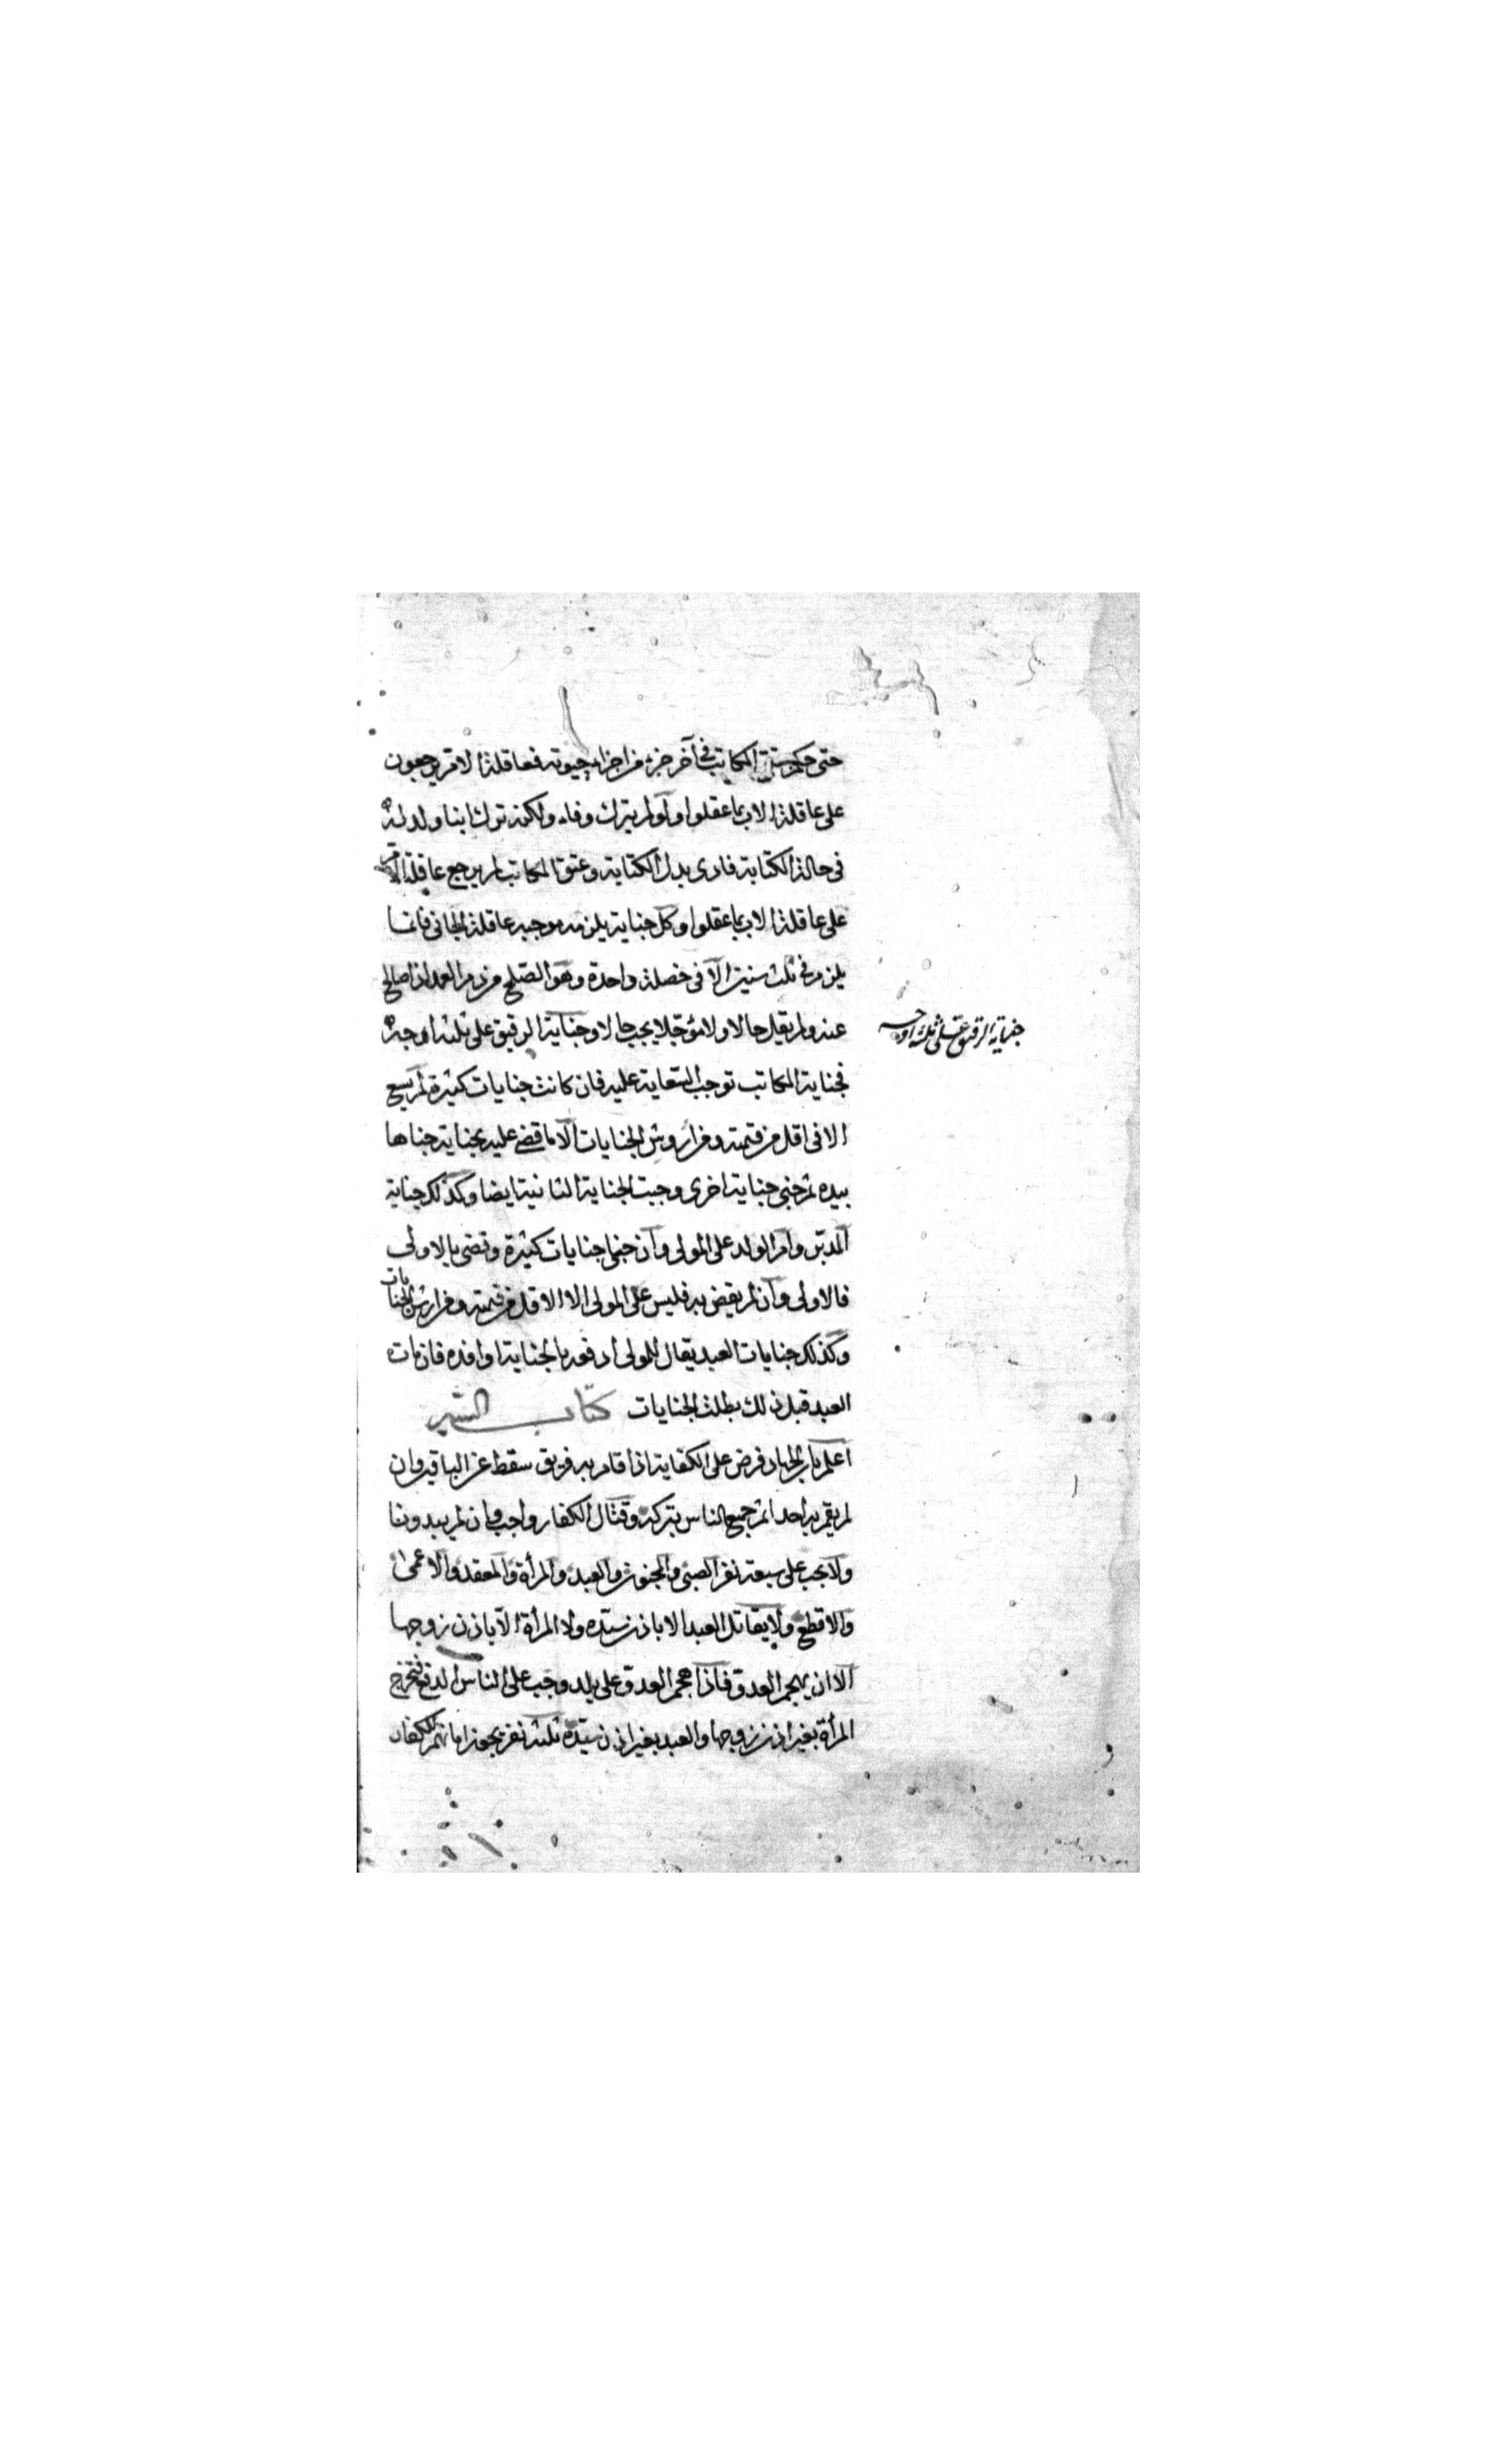 حتى حكم بعتق المكاتب فى آخر جزء من اجزاء حيوته فعاقلة الام يرجعون
على عاقلة الاب بما عقلوا ولو لم يترك وفاء ولكنه ترك ابنا ولد له
فى حالة الكتابة فادى بدل الكتابة وعتق المكاتب لم يرجع عاقلة الام
على عاقلة الاب بما عقلوا وكل جناية يلزم موجبه عاقلة الجانى فانما
يلزم فى ثلث سنين الا فى خصلة واحدة وهو الصلح من دم العمد اذا صالح
عنه ولم يقل حالا ولا مؤجلا يجب حالا وجناية الرقيق على ثلثة اوجه
فجناية المكاتب توجب السعاية عليه فان كانت جنايات كثيرة لم يسع
الا فى اقل من قيمته ومن اروش الجنايات الا ما قضى عليه بجناية جناها
بيده ثم جنى جناية اخرى وجبت الجناية الثانية ايضا وكذلك جناية
المدبر وام الولد على المولى وان جنى جنايات كثيرة وقضى بالاولى
فالاولى وان لم يقض به فليس على المولى الا الاقل من قيمته ومن ارش الجنايات
وكذلك جنايات العبد يقال للمولى ادفعه بالجناية او افده فان مات
العبد قبل ذلك بطلت الجنايات كتاب السير
اعلم بان الجهاد فرض على الكفاية اذا قام به فريق سقط عن الباقين وان
لم يقم به احد اثم جميع الناس بتركه وقتال الكفار واجب وان لم يبدونا
ولا يجب على سبعة نفر الصبى والمجنون والعبد والمرأة والمقعد والاعمى
والاقطع ولا يقاتل العبد الا باذن سيده ولا المرأة الا باذن زوجها
الا ان يهجم العدو فاذا هجم العدو على بلد وجب على الناس الدفع فتخرج
المرأة بغير اذن زوجها والعبد بغير اذن سيده ثلثة نفر يجوز امانهم للكفار
جناية الرقيق على ثلثة اوجه